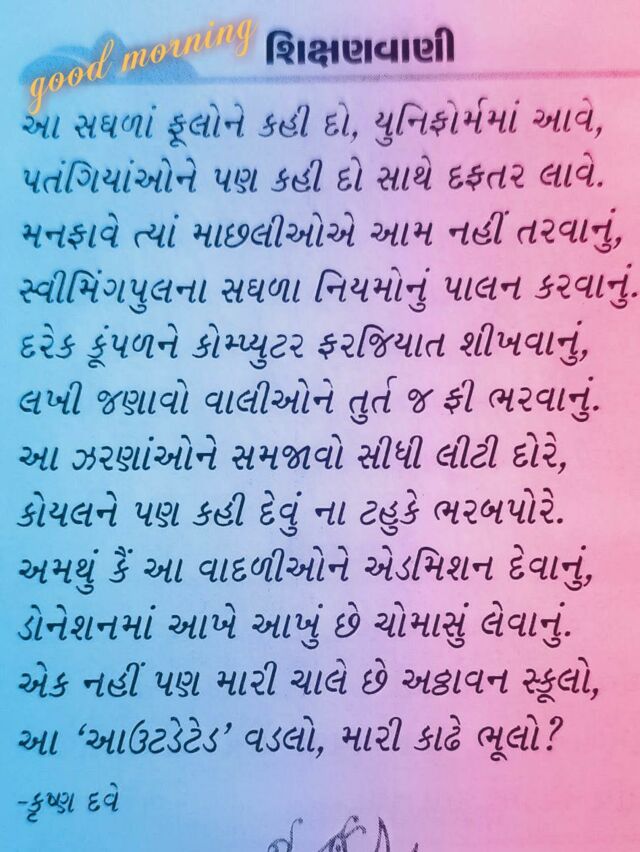 good morning
શિક્ષણવાણી
આ સઘળાં ફૂલોને કહી દો, યુનિફોર્મમાં આવે,
પતંગિયાંઓને પણ કહી દો સાથે દફતર લાવે.
મનફાવે ત્યાં માછલીઓએ આમ નહીં તરવાનું,
સ્વીમિંગપુલના સઘળા નિયમોનું પાલન કરવાનું.
દરેક કૂંપળને કોમ્પ્યુટર ફરજિયાત શીખવાનું,
લખી જણાવો વાલીઓને તુર્ત જ ફી ભરવાનું.
આ ઝરણાંઓને સમજાવો સીધી લીટી દોરે,
કોયલને પણ કહી દેવું ના ટહુકે ભરબપોરે.
અમથું કૈં આ વાદળીઓને એડમિશન દેવાનું,
ડોનેશનમાં આખે આખું છે ચોમાસું લેવાનું.
એક નહીં પણ મારી ચાલે છે અઠ્ઠાવન સ્કૂલો,
આ ‘આઉટડેટેડ’ વડલો, મારી કાઢે ભૂલો?
-કૃષ્ણ દવે